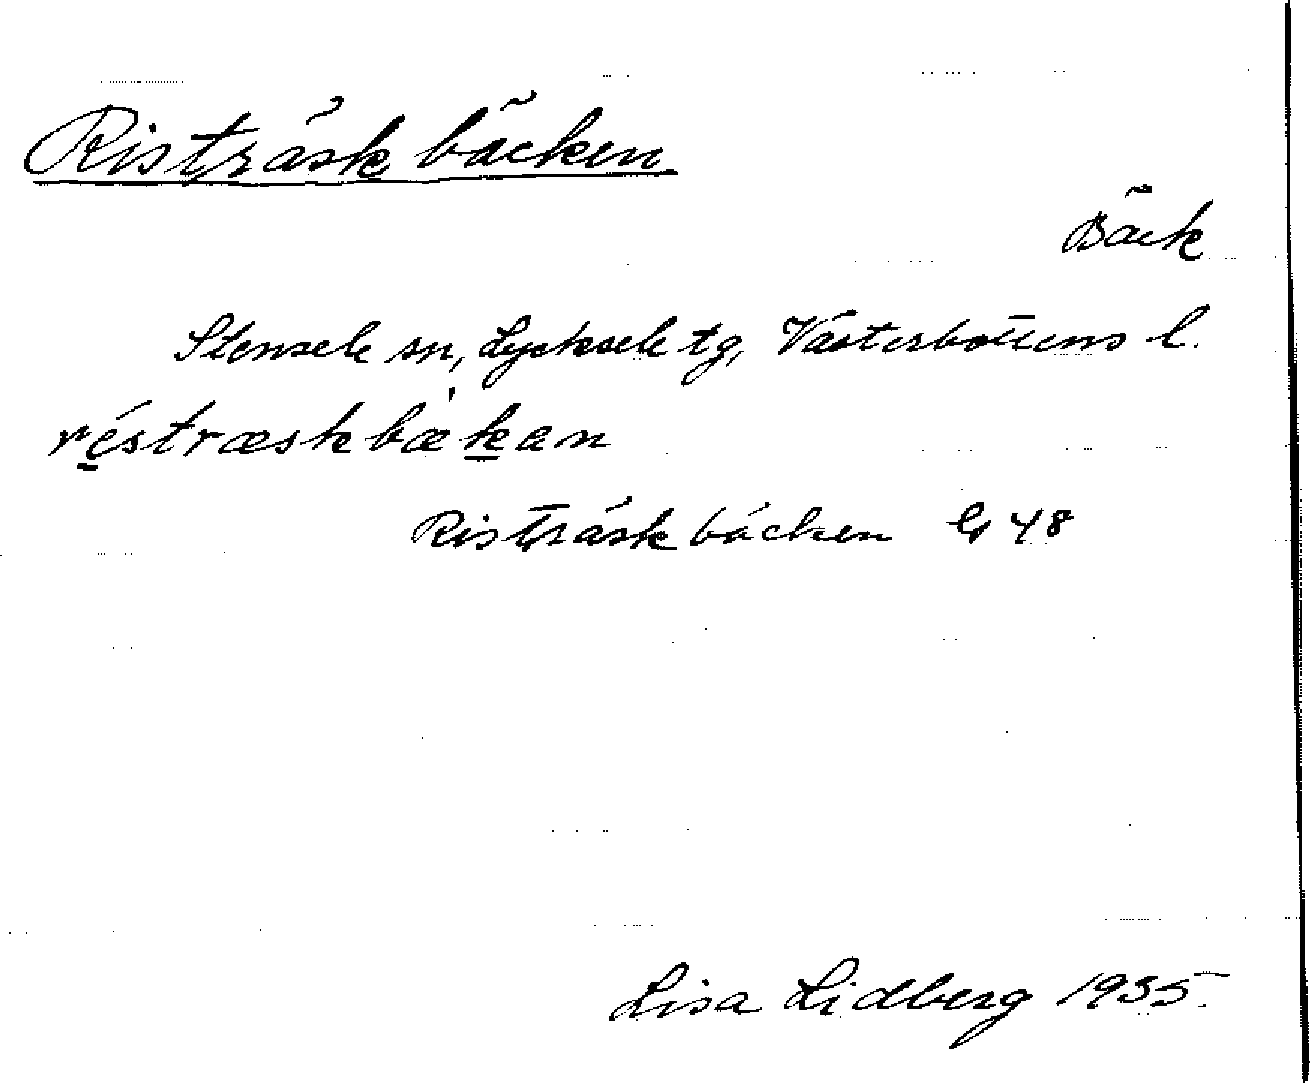 Risträskbäcken
Bäck
Stensele sn, Lycksele tg, Västerbottens l.
réstræskbæ̀kan
Risträskbäcken G 48
Lisa Lidberg 1935.